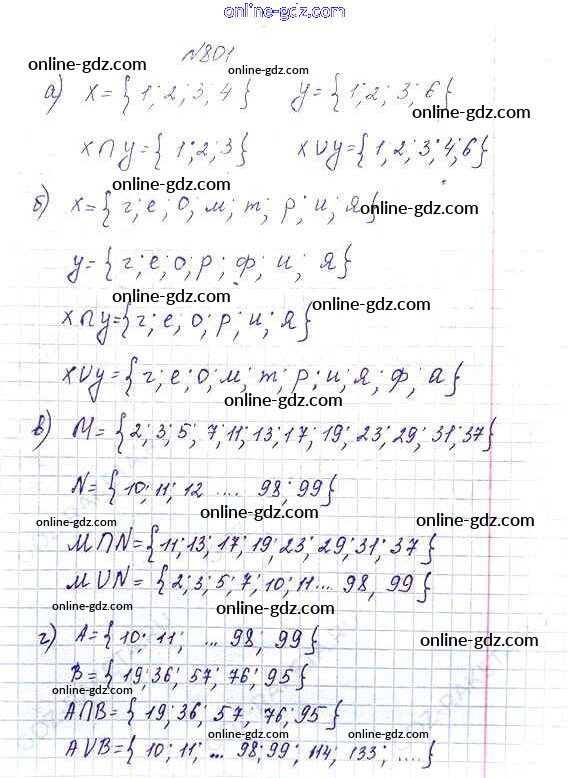 online-gdz.com
№801
online-gdz.com online-gdz.com
а) X={1;2;3;4} y={1;2;3;6}
online-gdz.com online-gdz.com
X∩y={1;2;3} X∪y={1;2;3;4;6}
online-gdz.com
б) X={г;е;о;м;т;р;и;я}
online-gdz.com
y={г;е;о;р;ф;и;я}
online-gdz.com
online-gdz.com online-gdz.com
X∩y={г;е,о;р;и;я}
online-gdz.com
X∪y={г;е;о;м;т;р;и;я;ф;а}
online-gdz.com online-gdz.com
в) M={2;3;5,7;11;13;17;19;23;29;31;37}
online-gdz.com
N={10;11;12 .... 98;99}
online-gdz.com online-gdz.com
M∩N={11;13;17;19;23;29;31;37}
online-gdz.com
M∪N={2;3;5;7;10;11... 98,99}
online-gdz.com online-gdz.com
г) A={10;11; ... 98;99}
online-gdz.com
B={19;36;57;76;95}
online-gdz.com
online-gdz.com
A∩B={19;36;57;76;95}
online-gdz.com
A∪B={10;11;... 98;99;114;133;....}
online-gdz.com